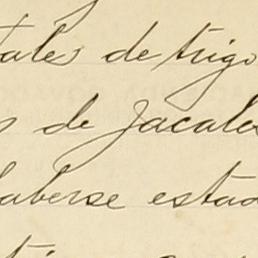 tales de trigo
de Jacala
haberse estad